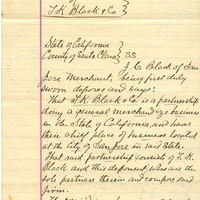 T.K. Black & Co }
State of California }
County of Santa Clara } SS
J. C. Black of San
Jose Merchant, being first duly
sworn deposes and says:
That T.K. Black & Co. is a partnership
doing a general merchandize business
in the State of California, and have
their chief place of business located
at the City of San Jose in said State.
That said partnership consists of T. K.
Black and this deponent who are the
sole partners therein and compose said
firm.